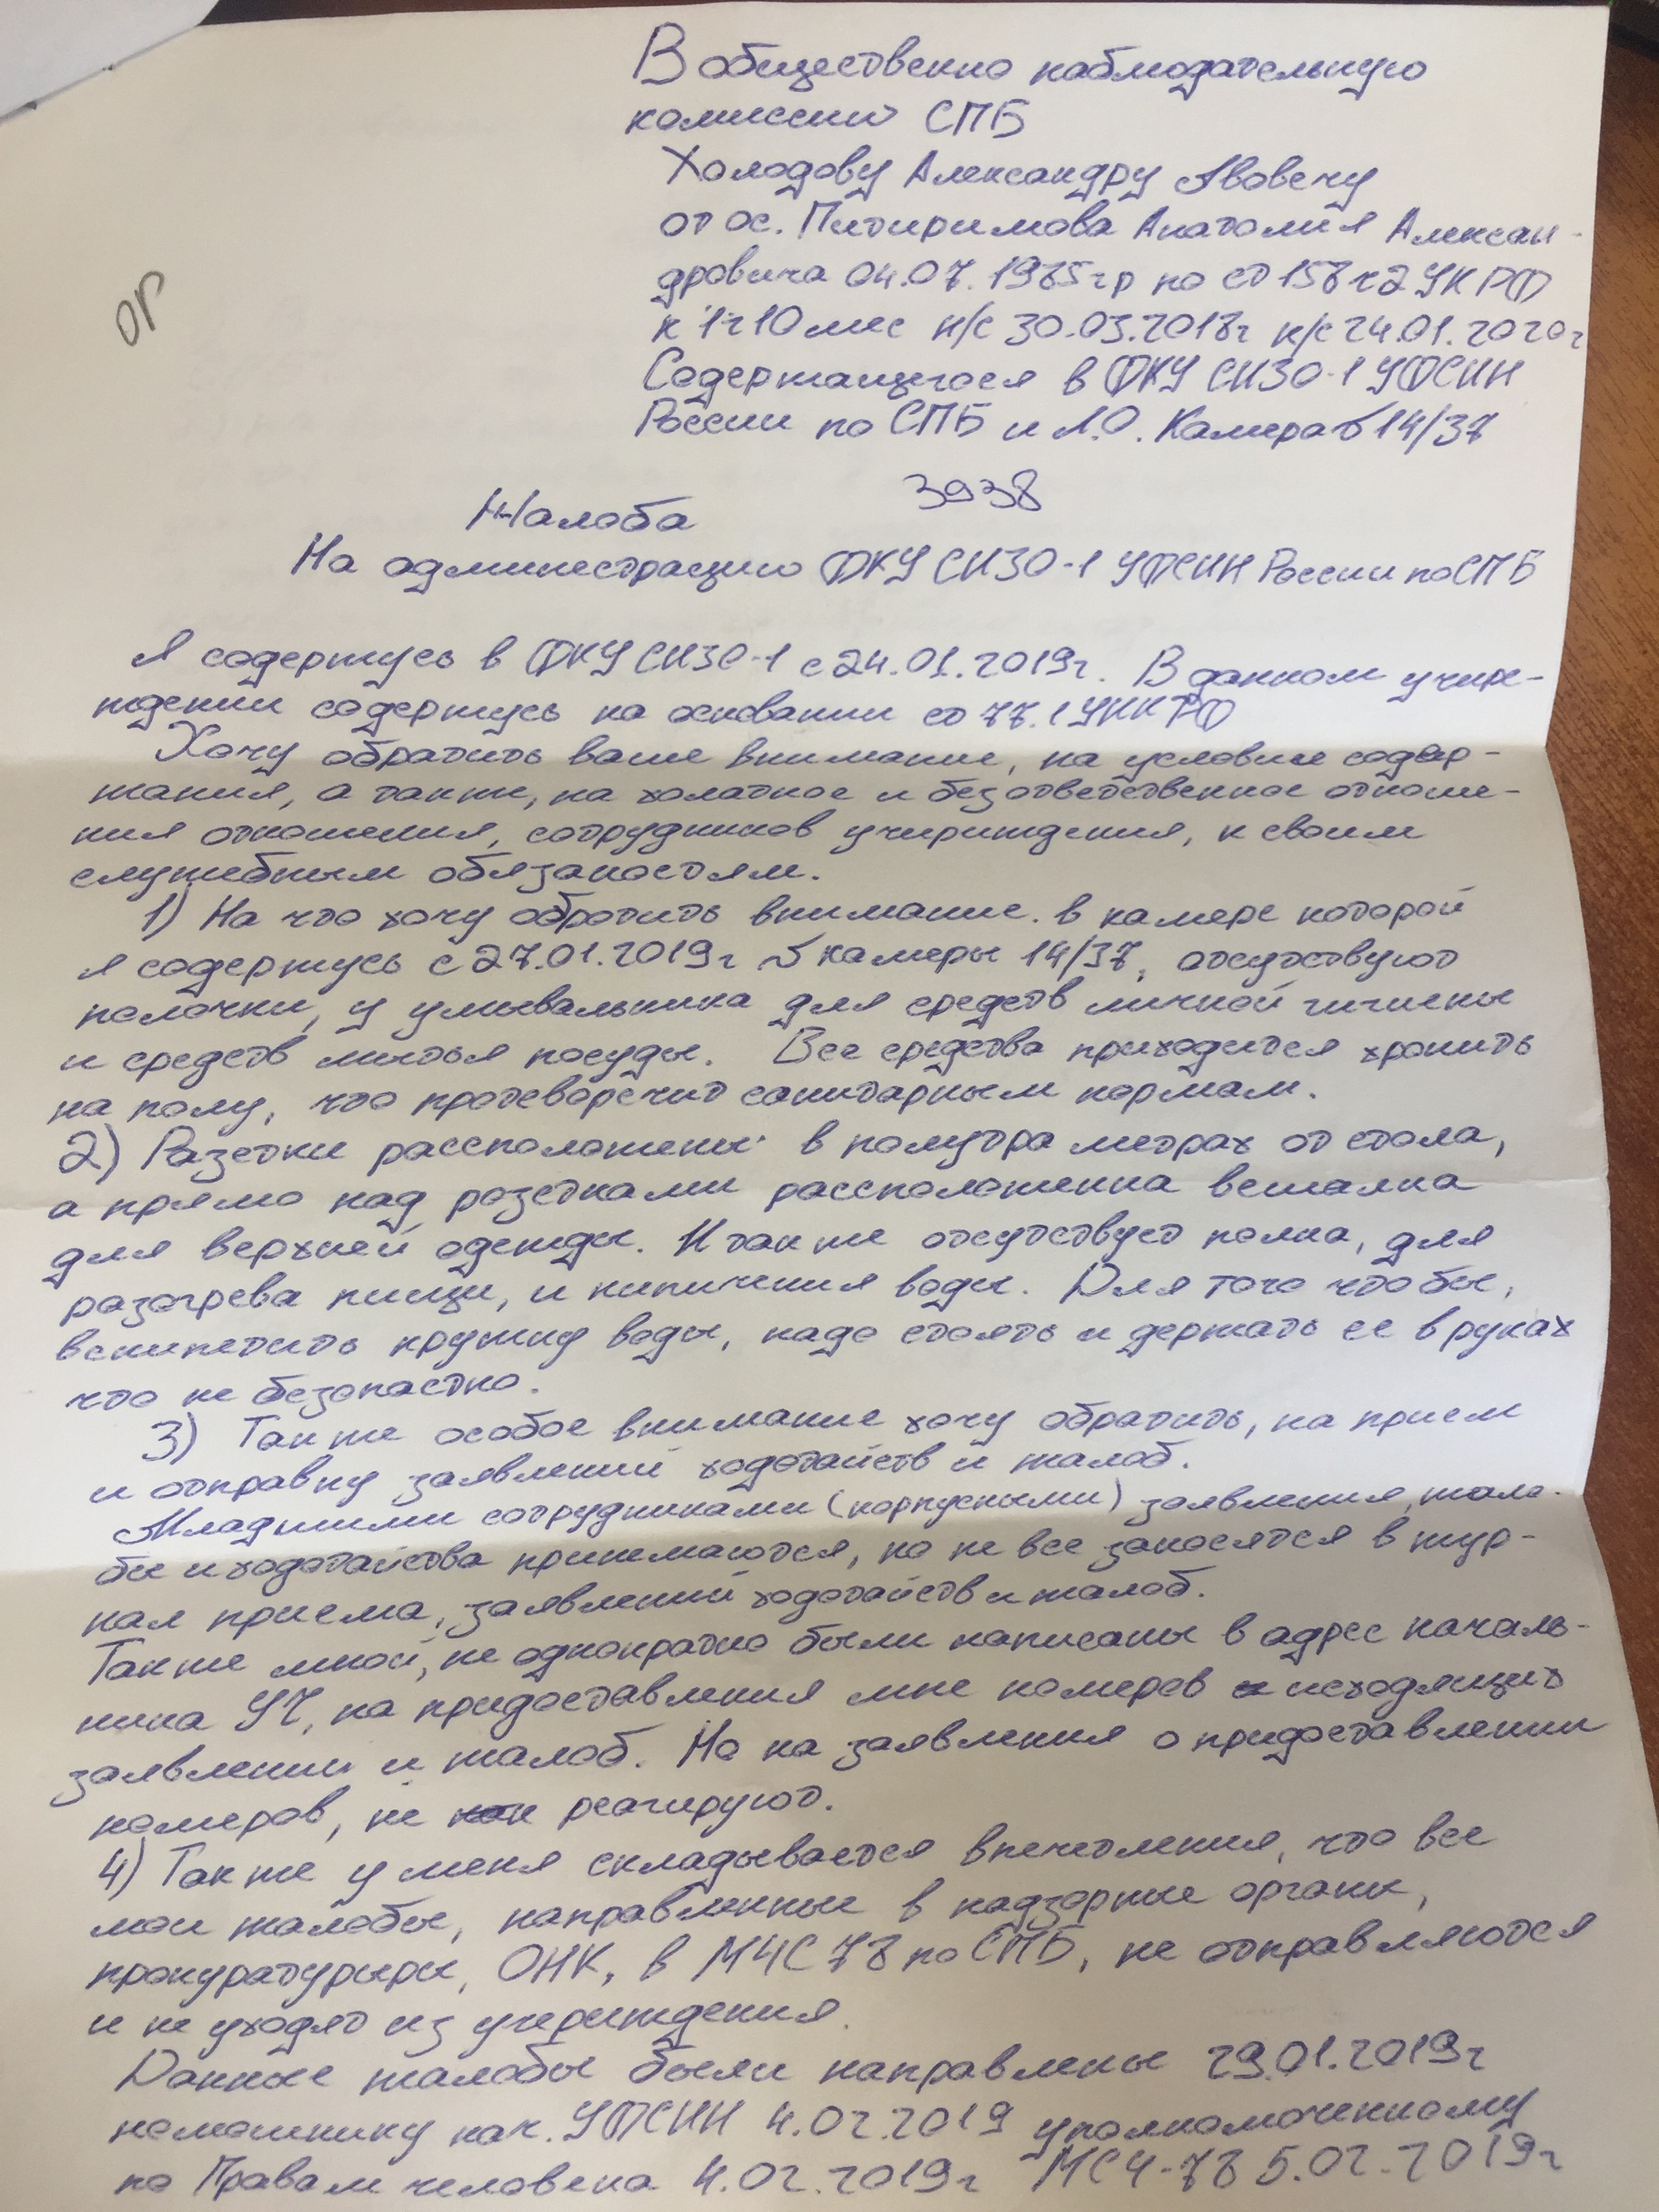 В общественно наблюдательную
комиссию СПБ
Холодову Александру Львовечу
от ос. Питиримова Анатолия Алексан-
дровича 04.07.1985гр по ст 158 ч2 УК РФ
к 1г 10 мес н/с 30.03.2018г к/с 24.01.2020г
Содержащегося в ФКУ СИЗО-1 УФСИН
России по СПБ и Л.О. Камера 14/37
ОГ
3938
Жалоба
На администрацию ФКУ СИЗО-1 УФСИН России по СПБ
Я содержусь в ФКУ СИЗО-1 с 24.01.2019г. В данном учире-
ждении содержусь на основании ст 77.1 УИК РФ
Хочу обратить ваше внимание, на условие содер-
жания, а также, на халатное и безответственное отноше-
ния отношения, сотрудников учириждения, к своим
служебным обязаностям.
1) На что хочу обротить внимание. в камере которой
я содержусь с 27.01.2019г камеры 14/37, отсутствуют
полочки, у умывальника для средств личной гигиены
и средств мытья посуды. Все средства приходится хронить
на полу, что протеворечит санитарным нормам.
2) Разетки рассположены в полутра метрах от стола,
а прямо над розетками рассположенна вешалка
для верхней одежды. И также отсутствует полка, для
розогрева пищи, и кипичения воды. Для того что бы,
вскипетить кружку воды, надо стоять и держать ее в руках
что не безопастно.
3) Также особое внимание хочу обратить, на прием
и отправку заявлений ходотайств и жалоб.
Младшими сотрудниками (корпусными) заявления, жало-
бы и ходотайства принемаются, но не все заносятся в жур-
нал приема, заявлений ходотайств и жалоб.
Также мной, не однократно были написаны в адрес началь-
ника УЧ, на придоставления мне номеров исходящих
заявлений и жалоб. Но на заявления о придоставлении
номеров, не реагируют.
4) Также у меня складывается впечетления, что все
мои жалобы, направленные в надзорные органы,
прокуратуры, ОНК, в МЧС 78 по СПБ, не отправляются
и не уходят из учериждения.
Данные жалобы были направлены 29.01.2019г
помошнику нач. УФСИН 4.02.2019 уполномоченному
по Правам человека 4.02.2019г МСЧ-78 5.02.2019г